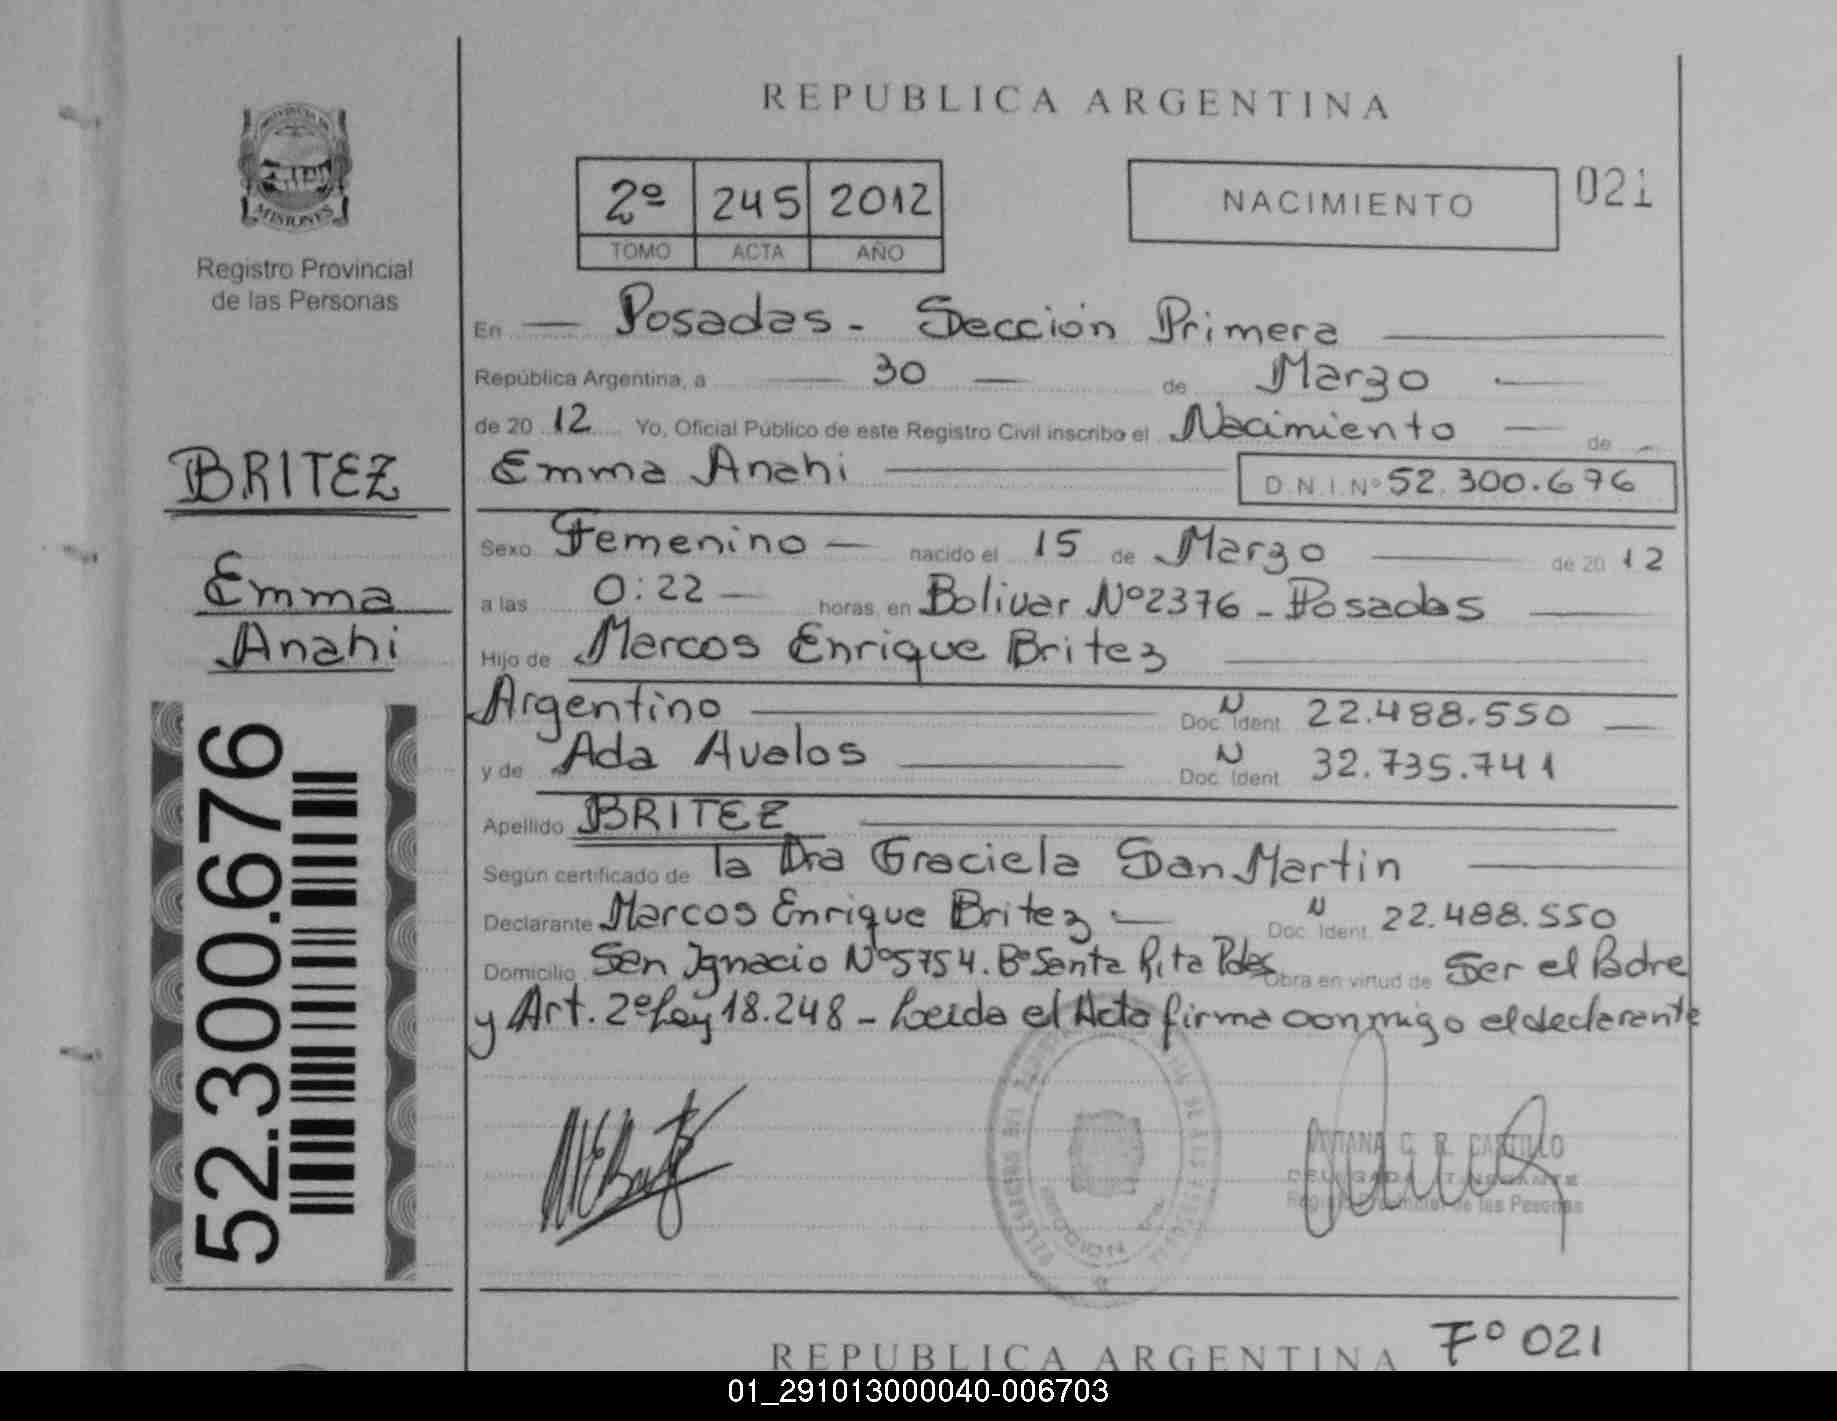 REPUBLICA ARGENTINA
PROVINCIA DE
MISIONES
Registro Provincial
de las Personas
2º 245 2012
TOMO ACTA AÑO
NACIMIENTO
021
En Posadas - Sección Primera
República Argentina, a 30 de Marzo
de 20 12 Yo, Oficial Público de este Registro Civil inscribo el Nacimiento de
Emma Anahi D.N.I.Nº 52.300.676
BRITEZ
Emma
Anahi
Sexo Femenino nacido el 15 de Marzo de 20 12
a las 0:22 horas, en Bolivar Nº2376 - Posadas
Hijo de Marcos Enrique Britez
Argentino Doc. Ident. N 22.488.550
y de Ada Avalos Doc. Ident. N 32.735.741
Apellido BRITEZ
Según certificado de la Dra Graciela San Martin
Declarante Marcos Enrique Britez Doc. Ident. N 22.488.550
Domicilio San Ignacio Nº5754. Bº Santa Rita Pdas Obra en virtud de Ser el Padre
y Art. 2º Ley 18.248 - Leida el Acta firma conmigo el declarante
52.300.676
VIVIANA C. R. CASTILLO
Registro Provincial de las Personas
Fº 021
REPUBLICA ARGENTINA
01_291013000040-006703